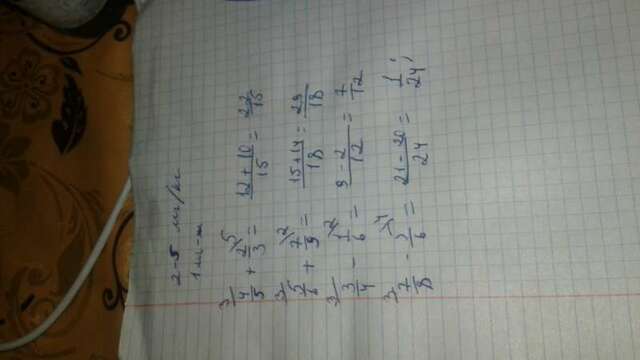 2-5 мг/кг
4/5 + 2/3 = 12+10/15 = 22/15
5/6 + 7/9 = 15+14/18 = 29/18
3/4 - 1/6 = 9-2/12 = 7/12
7/8 - 5/6 = 21-20/24 = 1/24;